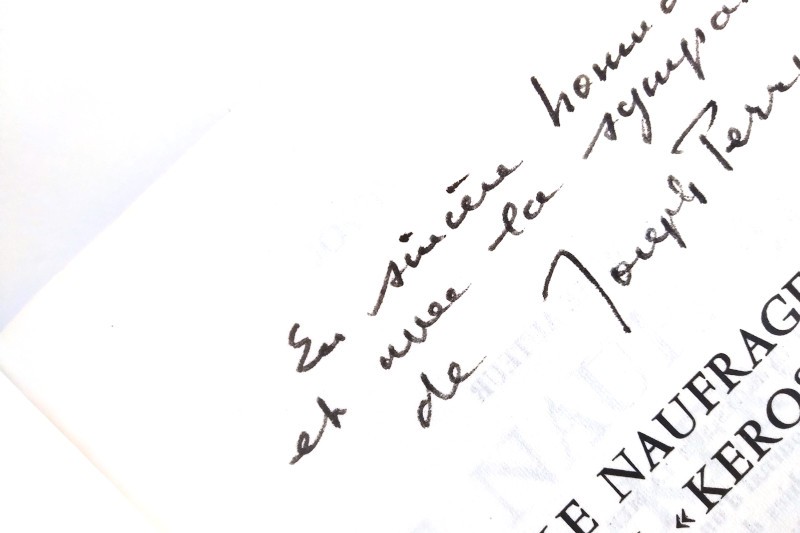 En sincère homma
et avec la sympa
de Joseph Perr
E NAUFRAGE
« KEROS